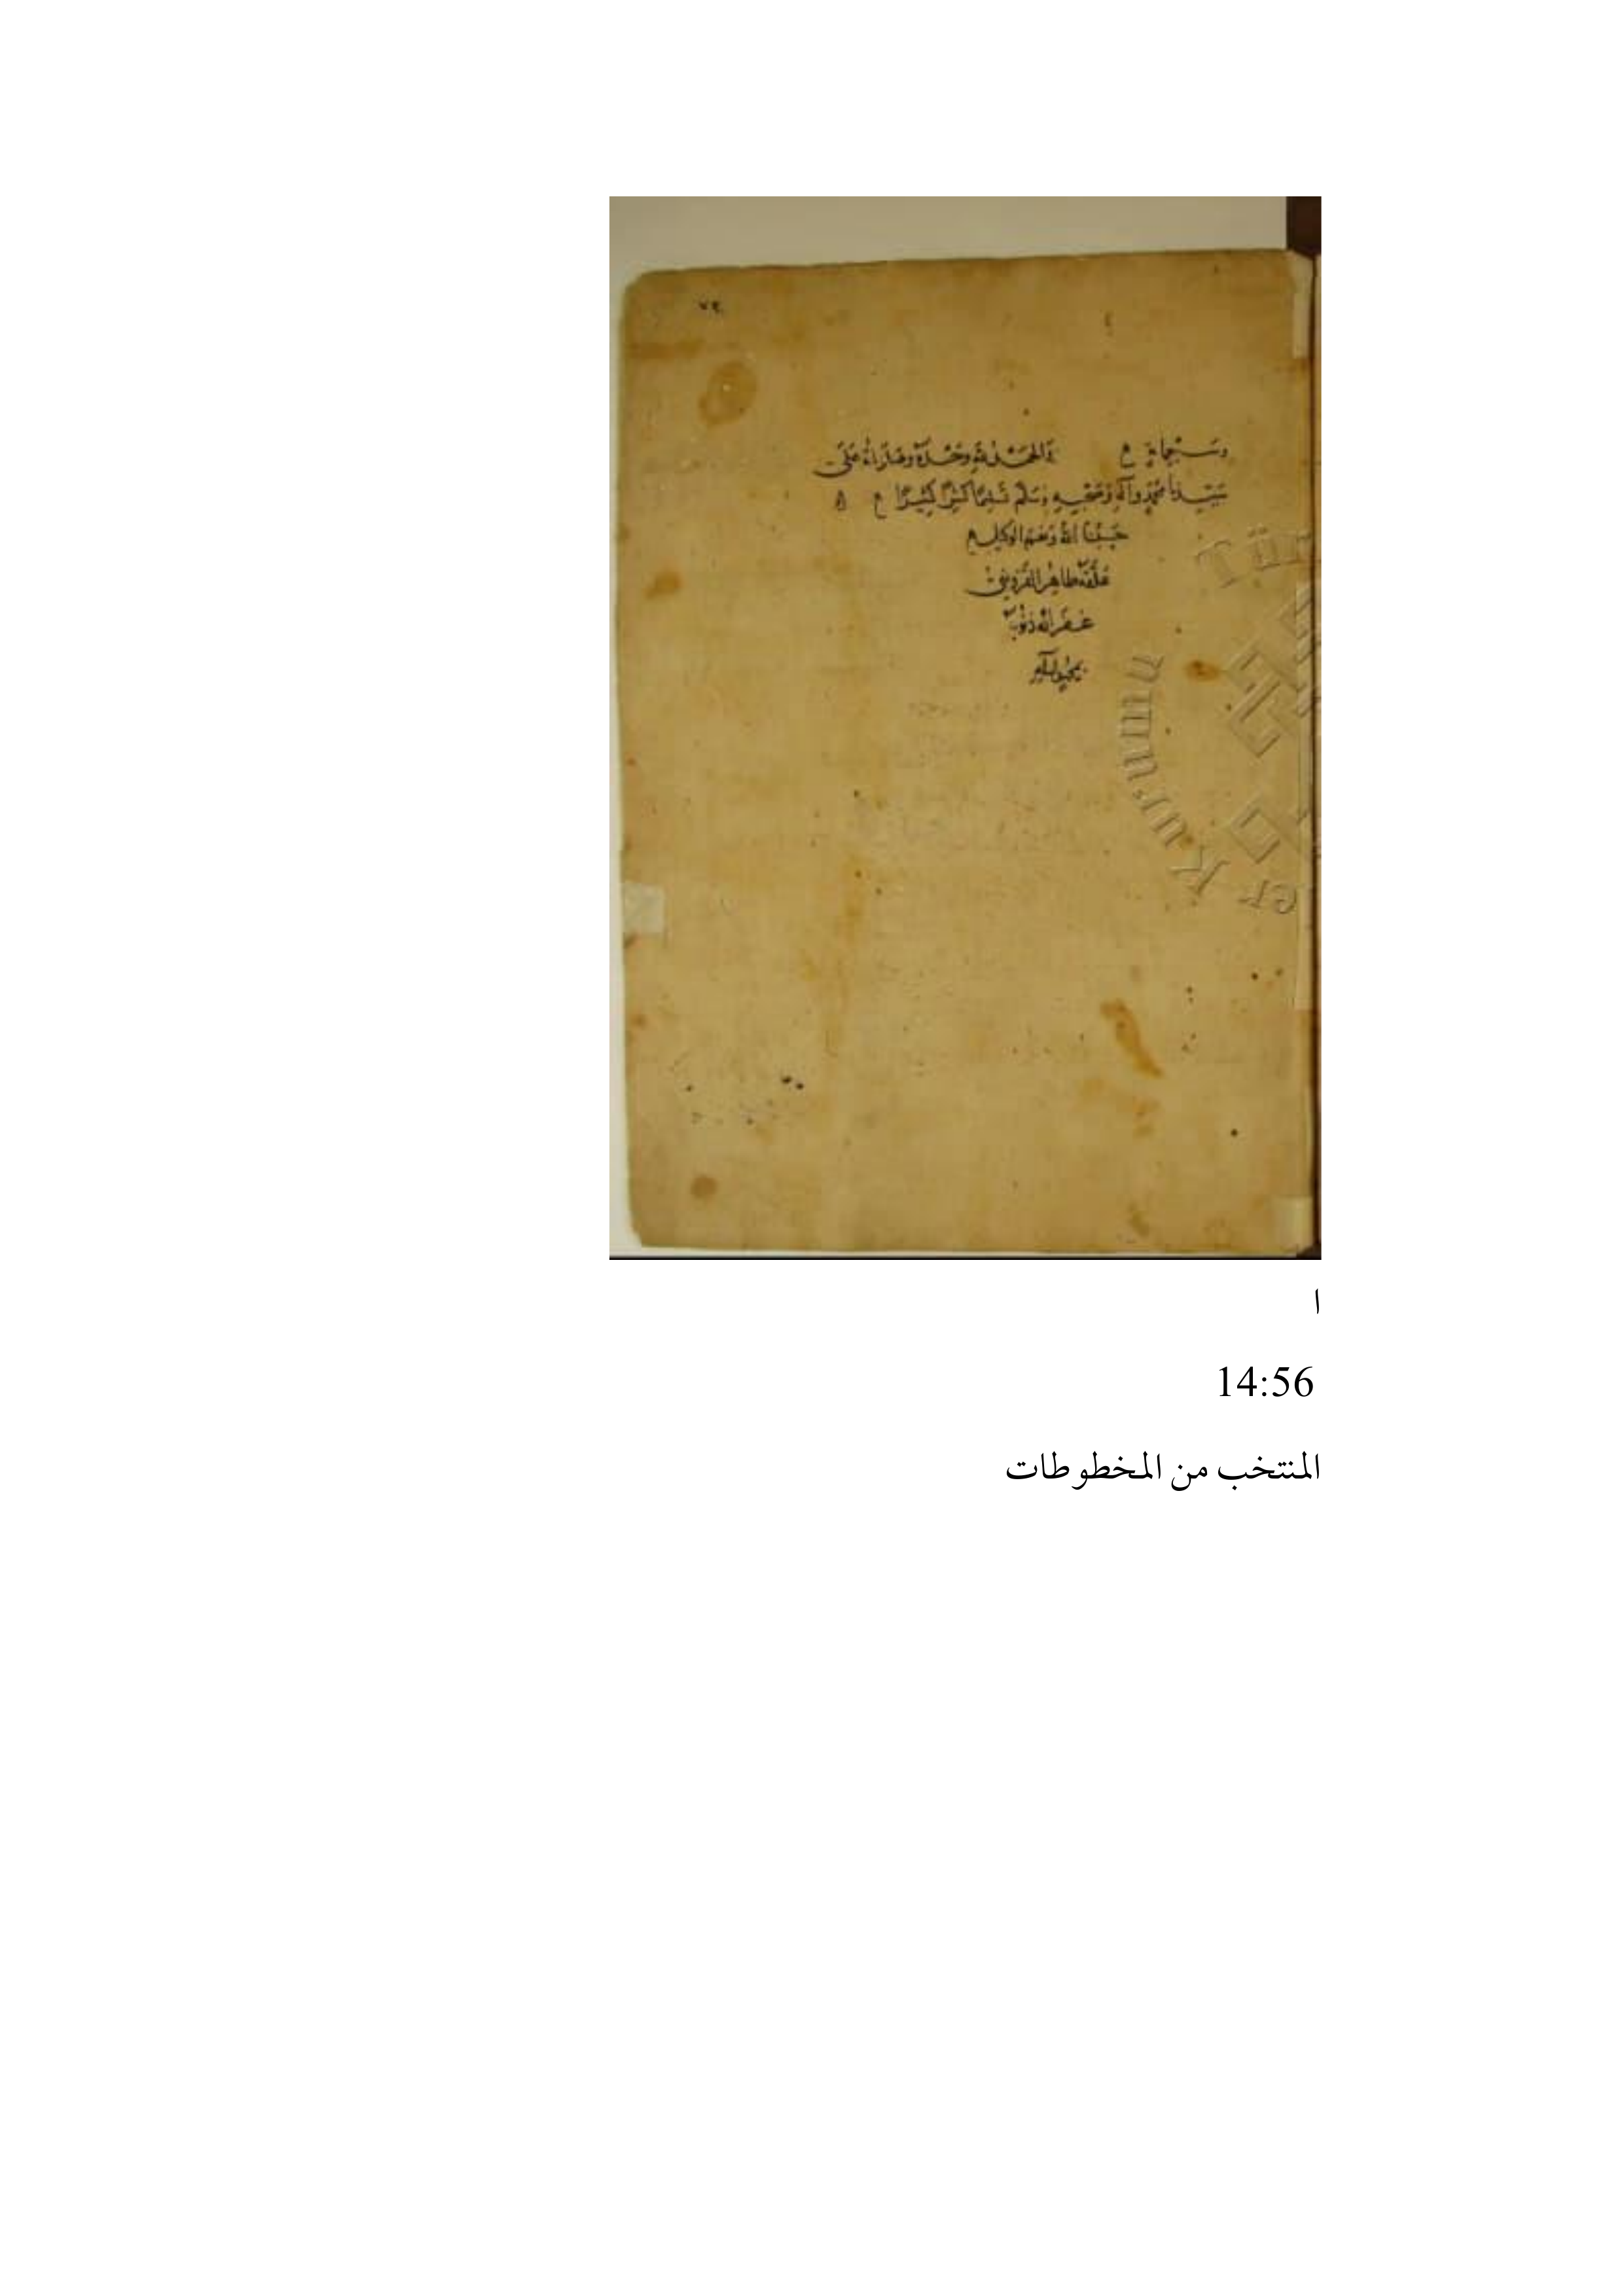 ٧٣
وسبعماية والحمد لله وحده وصلواته على
سيدنا محمد وآله وصحبه وسلم تسليما كثيرا كثيرا
حسبنا الله ونعم الوكيل
علقه طاهر القزويني
غفر الله ذنوبه
ا
14:56
المنتخب من المخطوطات